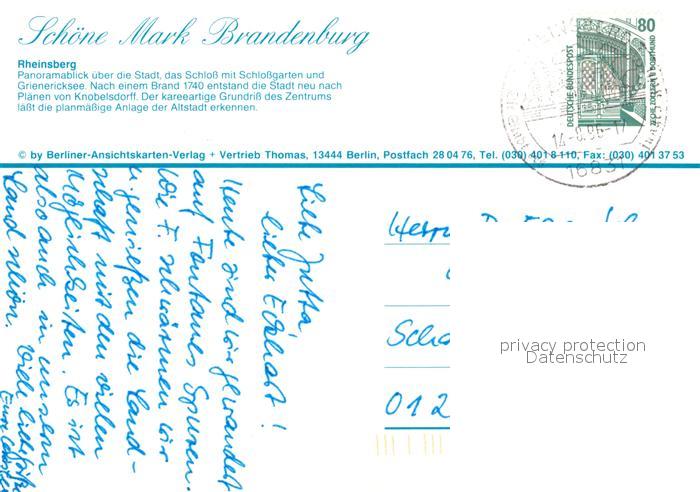 Schöne Mark Brandenburg
Rheinsberg
Panoramablick über die Stadt, das Schloß mit Schloßgarten und
Grienericksee. Nach einem Brand 1740 entstand die Stadt neu nach
Plänen von Knobelsdorff. Der kareeartige Grundriß des Zentrums
läßt die planmäßige Anlage der Altstadt erkennen.
80
DEUTSCHE BUNDESPOST
ZECHE ZOLLERN II DORTMUND
16831
© by Berliner-Ansichtskarten-Verlag + Vertrieb Thomas, 13444 Berlin, Postfach 28 04 76, Tel. (030) 401 8 110, Fax: (030) 401 37 53
Liebe Jutta,
lieber Eckhart!
Heute sind wir gewandert
auf Fontanes Spuren.
Wie F. schwärmen wir
u. genießen die Land-
schaft mit den vielen
Möglichkeiten. Es ist
also auch in unserm
Land schön. Viele liebe Grüße
Herrn
Scha
012
privacy protection
Datenschutz